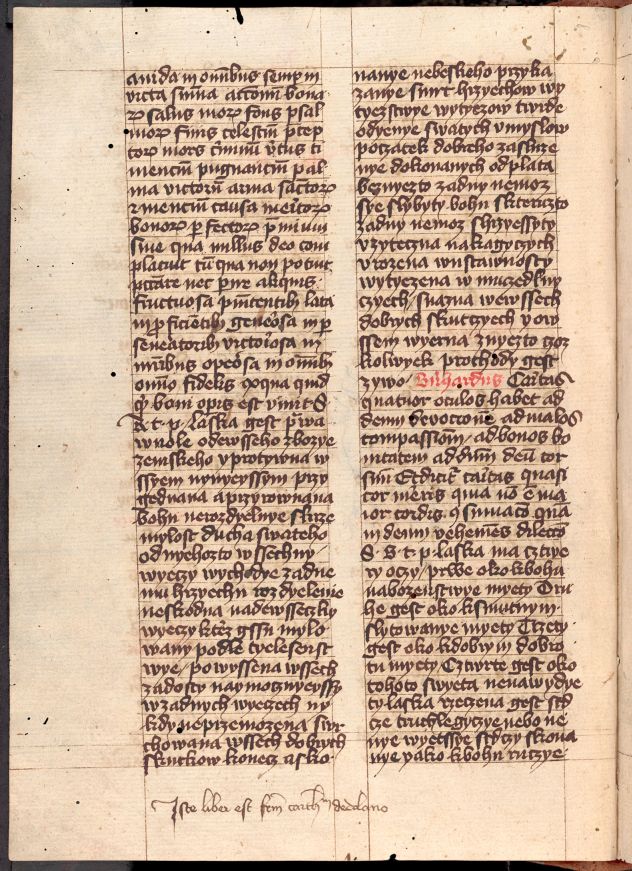 auida in omnibus semper in
victa summa actionum bona
rum salus morum fons psal
morum finis celestium precep
torum mors criminum virtus ti
mencium pugnancium pal
ma victorum arma sanctorum
causa meritorum
bonorum perfectorum premium
sine qua nullus deo com
placuit cum qua non potuit
peccare nec poterit aliquis
fructuosa penitentibus leta
in proficientibus gloriosa in per
seueratoribus victoriosa in
opeosa in omnibus
omnino fidelis quoqua quid
quid boni operis est viuit S
A t p laska gest prawa
wuole odewsseho zbozye
zemskeho vprotywna w
ssyem naywyssym przy
gednana a przyrownana
bohu nerozdyelnye skrze
mylost ducha swateho
odnyehozto wssechny
wyeczy wychodye zadne
mu hrzyechu rozdyelenie
neskodna nadewsseczky
wyeczy ktez gssu mylo
wany podle tyelesenst
wye powyssena wssech
zadosty naymocznyeyssy
wzadnych wyeczech ny
kdy nepremozena swr
chowana wssech dobrych
skutkow konecz a sko
nanye nebeskeho przyka
zanye smrt hrzyechow wy
tyezstwye wytyezow twrde
odyenye swatych vmyslow
poczatek dobreho zasluze
nye dokonanych odplata
beznyezto zadny nemoz
sye slybyty bohu skterizto
zadny nemoz shrzyessyty
vzyteczna nakagyczych
vrozena wustawnosty
wytyezena w muzedlny
czyech snazna wewssech
dobrych skutczyech vow
ssem wyerna znyezto czoz
kolwyek prochody gest
zywo Bernhardus Caritas
quatuor oculos habet ad
deum deuocionem ad malos
compassionem ad bonos bo
nitatem ad deum cor
sum Et dicitur caritas quasi
cor meris quia non est ma
ior cordis coniunctio quam
in deum vehemens dileccio
S B t p laska ma cztyrzy
ty oczy prwe oko kbohu
nabozenstwye myety Dru
he gest oko ksmutnym
slytowanye myety Trzety
gest oko kdobrym dobro
tu myety Cztwrte gest oko
tohoto swyeta nenawydye
ty laska rzeczena gest srd
cze truchlegyczye nebo ne
nye wyetssye srdczy skona
nye yako kbohu ruczye
Iste liber est fratrum carthusiensium de dolano